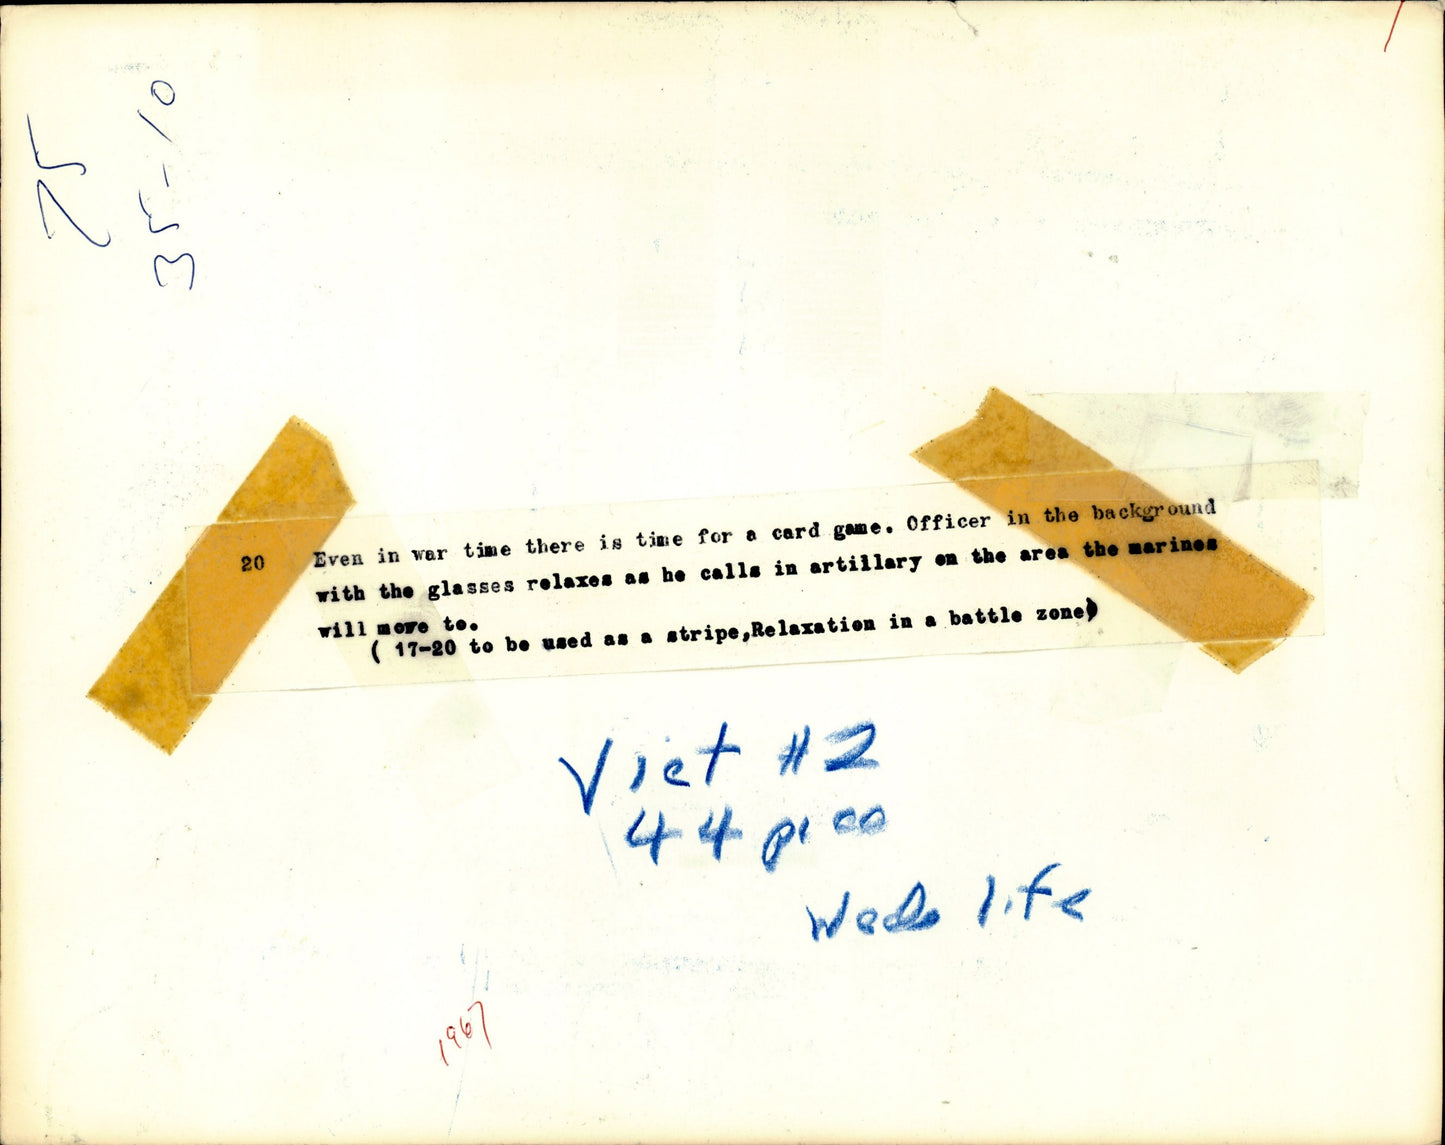 75
35-10
20 Even in war time there is time for a card game. Officer in the background
with the glasses relaxes as he calls in artillary on the area the marines
will move to.
( 17-20 to be used as a stripe,Relaxation in a battle zone)
Viet #2
44 pics
Weds life
1967